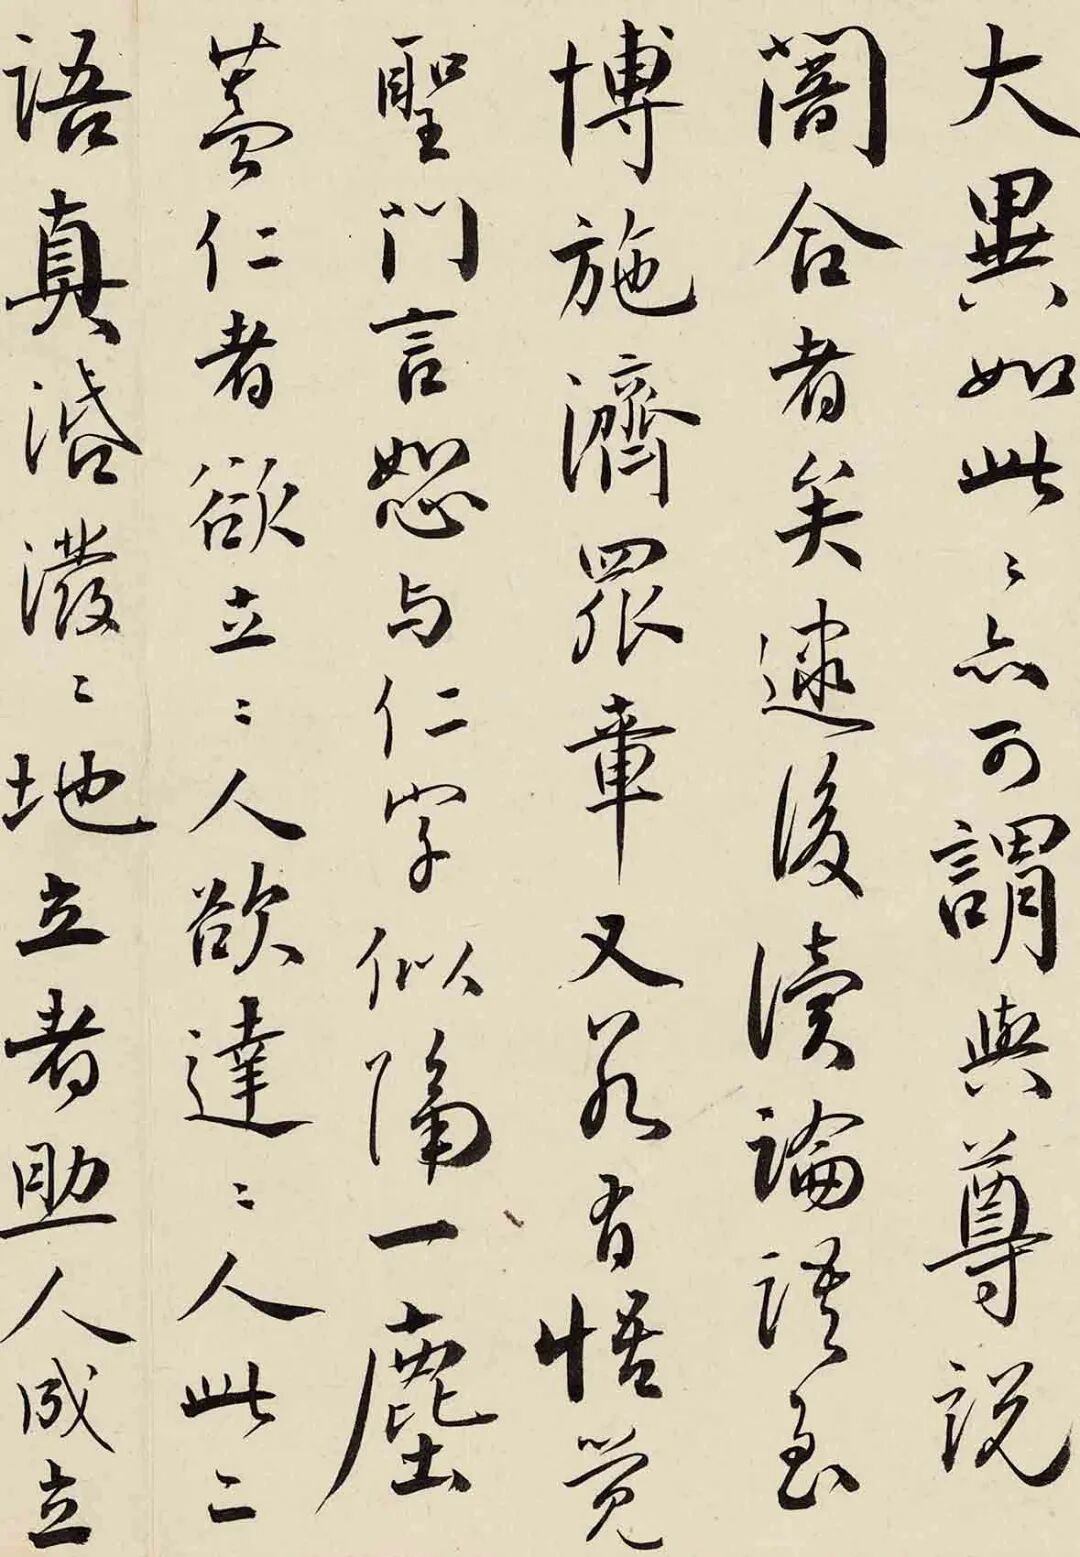 大異如此〻亦可謂與尊説
闇合者矣逮後讀論語至
博施濟眾章又若有悟覺
聖門言恕与仁字似隔一塵
蓋仁者欲立〻人欲達〻人此二
語真活潑〻地立者助人成立